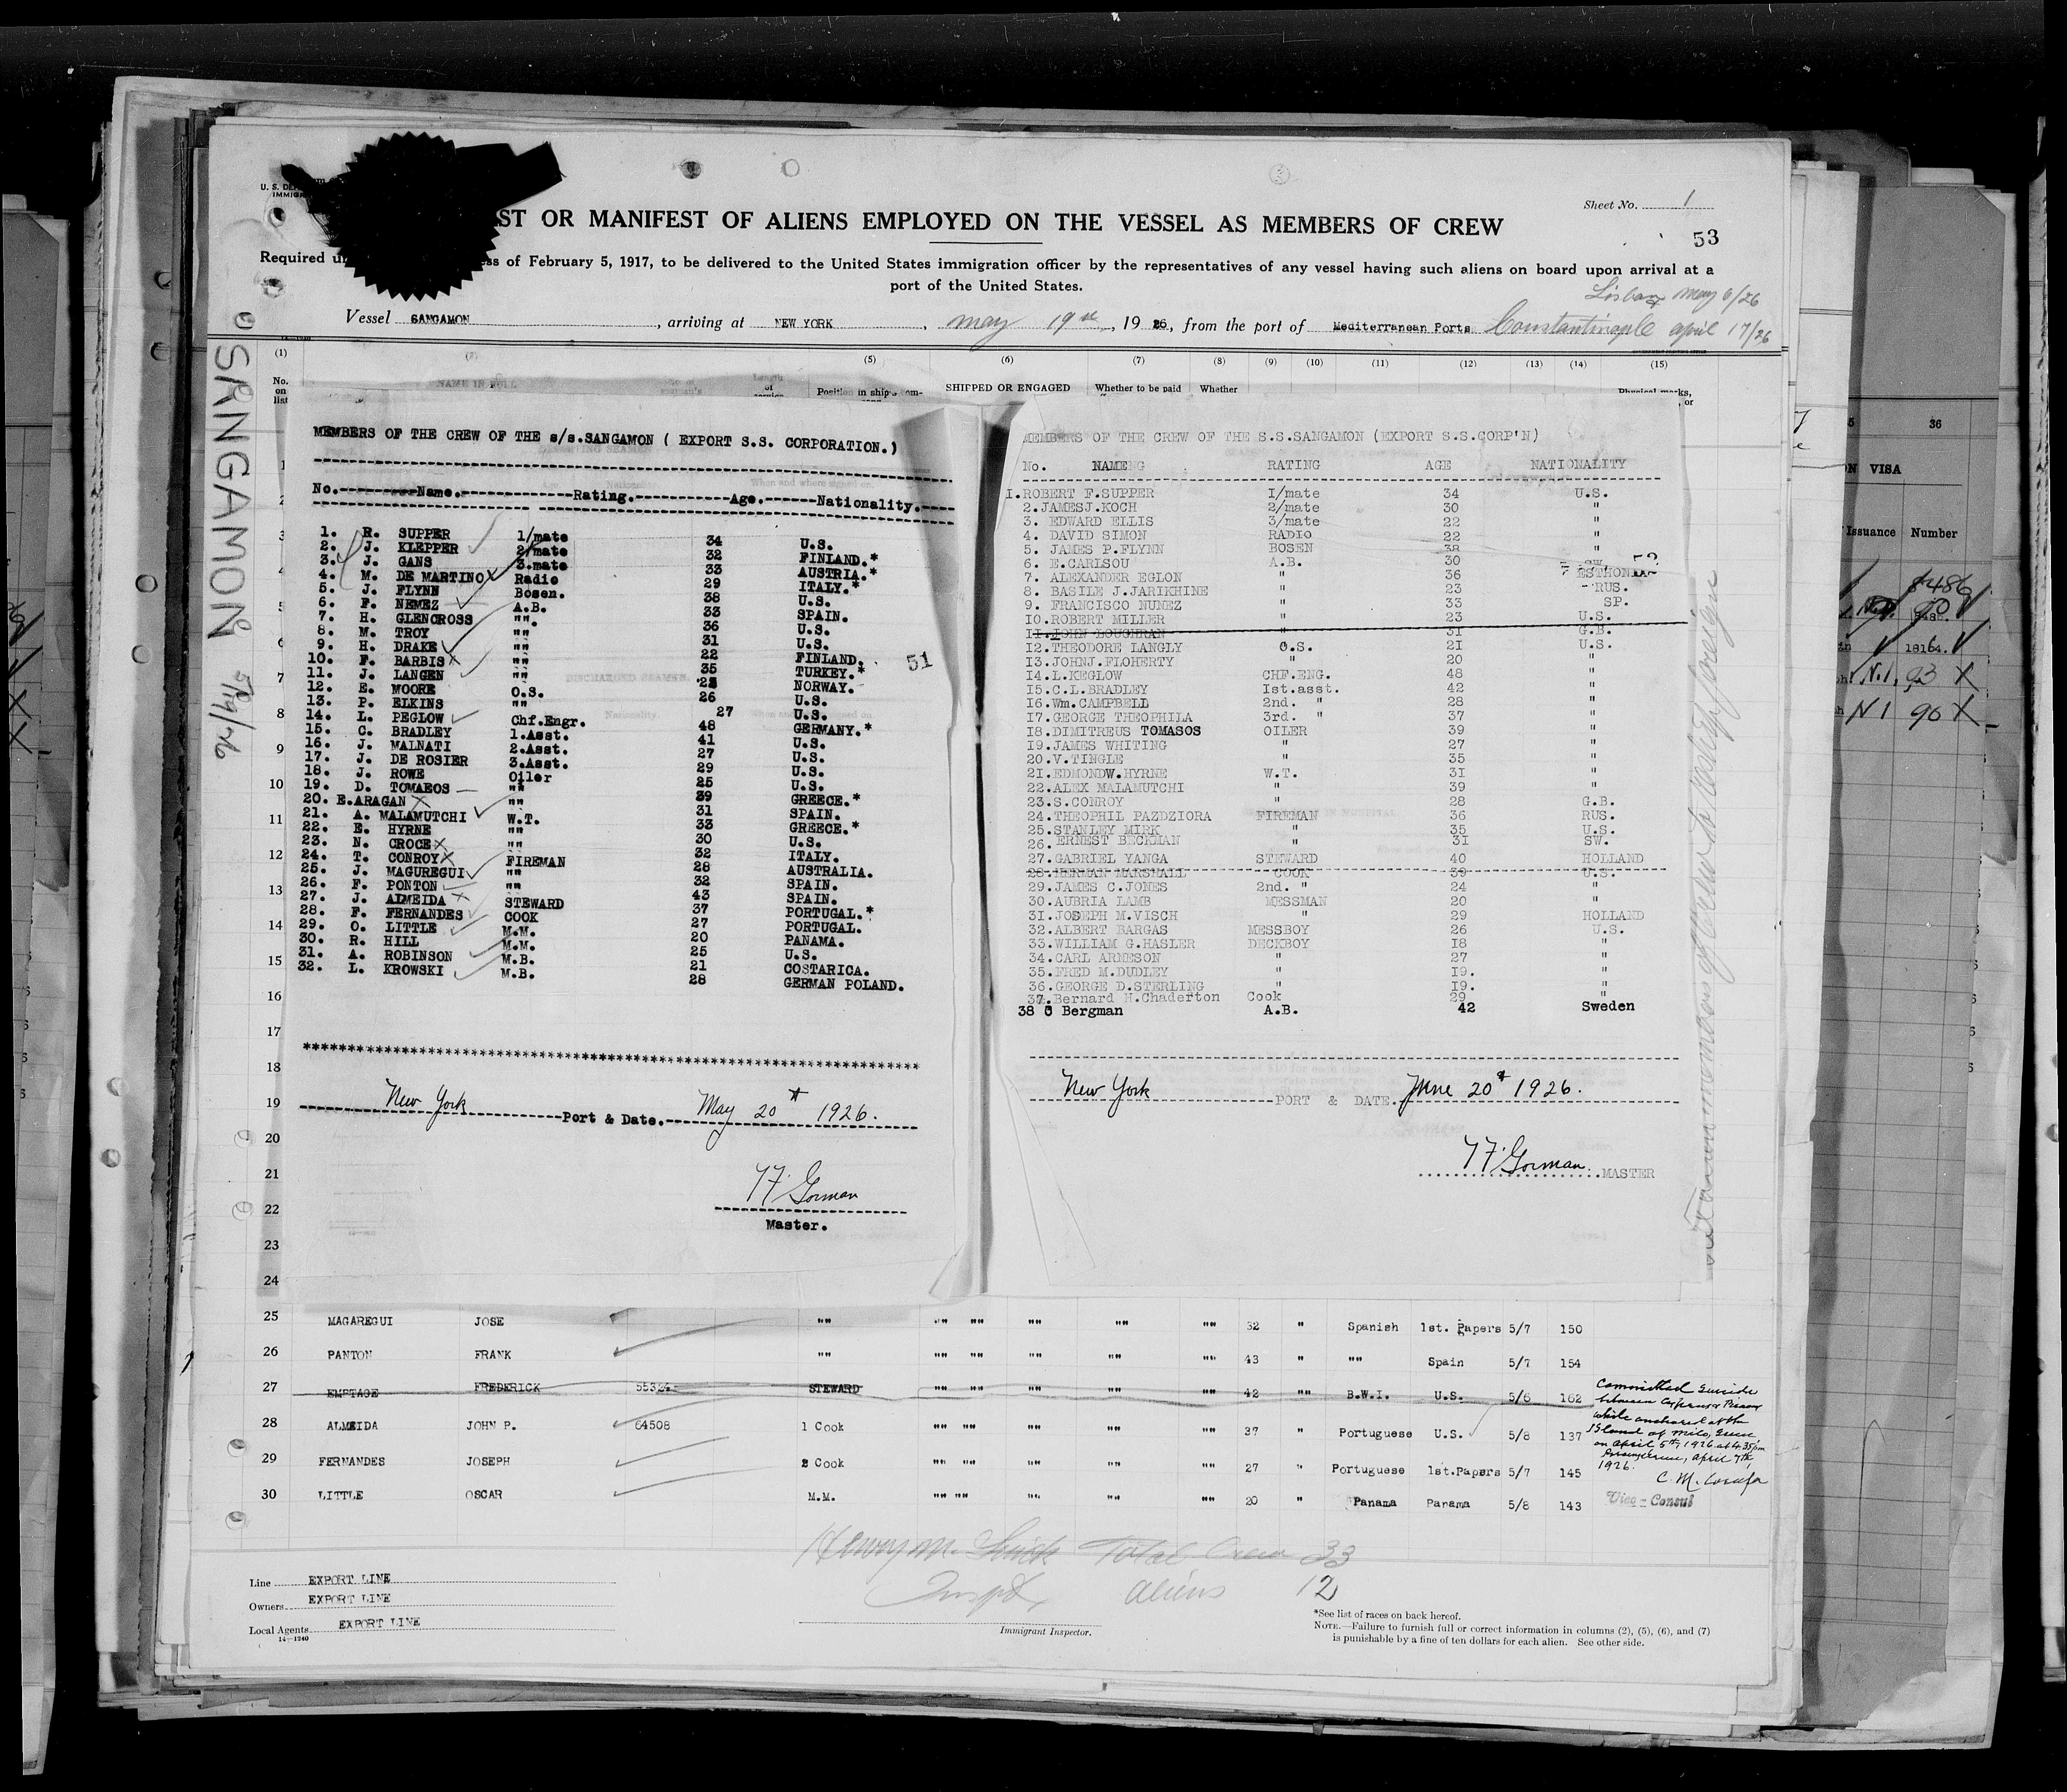 Sheet No. 1
53
U. S. DE
IMMIG
ST OR MANIFEST OF ALIENS EMPLOYED ON THE VESSEL AS MEMBERS OF CREW
Required u ess of February 5, 1917, to be delivered to the United States immigration officer by the representatives of any vessel having such aliens on board upon arrival at a
port of the United States.
Lisbon May 6/26
Vessel SANGAMON, arriving at NEW YORK, may 19th, 1926, from the port of Mediterranean Ports Constantinople april 17/26
(1) (5) (6) (7) (8) (9) (10) (11) (12) (13) (14) (15)
No. on list NAME IN FULL Position in ship's com- SHIPPED OR ENGAGED Whether to be paid Whether Physical marks, or
SANGAMON 5/19/26
MEMBERS OF THE CREW OF THE s/s.SANGAMON ( EXPORT S.S. CORPORATION.)
No. Name. Rating. Age. Nationality.
1. R. SUPPER 1/mate 34 U.S.
2. J. KLEPPER 2/mate 32 FINLAND.*
3. J. GANS 3.mate 33 AUSTRIA.*
4. M. DE MARTINO Radio 29 ITALY.*
5. J. FLYNN Bosen. 38 U.S.
6. F. NEMEZ A.B. 33 SPAIN.
7. H. GLENCROSS "". 36 U.S.
8. M. TROY "" 31 U.S.
9. H. DRAKE "" 22 FINLAND.
10. F. BARBIS "" 35 TURKEY.*
11. J. LANGEN "" 25 NORWAY.
12. E. MOORE O.S. 26 U.S.
13. P. ELKINS "" 27 U.S.
14. L. PEGLOW Chf.Engr. 48 GERMANY.*
15. C. BRADLEY 1.Asst. 41 U.S.
16. J. MALNATI 2.Asst. 27 U.S.
17. J. DE ROSIER 3.Asst. 29 U.S.
18. J. ROWE Oiler 25 U.S.
19. D. TOMAEOS "" 39 GREECE.*
20. E.ARAGAN "" 31 SPAIN.
21. A. MALAMUTCHI W.T. 33 GREECE.*
22. E. HYRNE "" 30 U.S.
23. N. CROCE "" 32 ITALY.
24. T. CONROY FIREMAN 28 AUSTRALIA.
25. J. MAGUREGUI "" 32 SPAIN.
26. F. PONTON "" 43 SPAIN.
27. J. ALMEIDA STEWARD 37 PORTUGAL.*
28. F. FERNANDES COOK 27 PORTUGAL.
29. O. LITTLE M.M. 20 PANAMA.
30. R. HILL M.M. 25 U.S.
31. A. ROBINSON M.B. 21 COSTARICA.
32. L. KROWSKI M.B. 28 GERMAN POLAND.
51
New York Port & Date. May 20th 1926.
T F Gorman
Master.
MEMBERS OF THE CREW OF THE S.S.SANGAMON (EXPORT S.S.CORP'N)
No. NAME RATING AGE NATIONALITY
I.ROBERT F.SUPPER I/mate 34 U.S.
2.JAMESJ.KOCH 2/mate 30 "
3. EDWARD ELLIS 3/mate 22 "
4. DAVID SIMON RADIO 22 "
5. JAMES P.FLYNN BOSEN 38 "
6. E.CARLSOU A.B. 30
7. ALEXANDER EGLON " 36 ESTHONIA
8. BASILE J.JARIKHINE " 23 RUS.
9. FRANCISCO NUNEZ " 33 SP.
IO.ROBERT MILLER " 23 U.S.
II.JOHN LOUGHRAN " 31 G.B.
I2.THEODORE LANGLY O.S. 21 U.S.
I3.JOHNJ.FLOHERTY " 20 "
I4.L.KEGLOW CHF.ENG. 48 "
I5.C.L.BRADLEY Ist.asst. 42 "
I6.Wm.CAMPBELL 2nd. " 28 "
I7.GEORGE THEOPHILA 3rd. " 37 "
I8.DIMITREUS TOMASOS OILER 39 "
I9.JAMES WHITING " 27 "
20.V.TINGLE " 35 "
21.EDMONDW.HYRNE W.T. 31 "
22.ALEX MALAMUTCHI " 39 "
23.S.CONROY " 28 G.B.
24.THEOPHIL PAZDZIORA FIREMAN 36 RUS.
25.STANLEY MIRK " 35 U.S.
26.ERNEST BECKMAN " 31 SW.
27.GABRIEL YANGA STEWARD 40 HOLLAND
28.HERMAN MARSHALL COOK 39 U.S.
29.JAMES C.JONES 2nd. " 24 "
30.AUBRIA LAMB MESSMAN 20 "
31.JOSEPH M.VISCH " 29 HOLLAND
32.ALBERT BARGAS MESSBOY 26 U.S.
33.WILLIAM G.HASLER DECKBOY I8 "
34.CARL ARNESON " 27 "
35.FRED M.DUDLEY " I9. "
36.GEORGE D.STERLING " I9. "
37.Bernard H.Chaderton Cook 29 "
38 O Bergman A.B. 42 Sweden
New York PORT & DATE. June 20th 1926.
T F Gorman MASTER
1
2
3
4
5
6
7
8
9
10
11
12
13
14
15
16
17
18
19
20
21
22
23
24
25 MAGAREGUI JOSE "" "" "" "" "" "" 32 " Spanish 1st. Papers 5/7 150
26 PANTON FRANK "" "" "" "" "" "" 43 " "" Spain 5/7 154
27 EMPTAGE FREDERICK STEWARD "" "" "" "" "" 42 "" B.W.I. U.S. 5/6 162
28 ALMEIDA JOHN P. 64508 1 Cook "" "" "" "" "" 37 " Portuguese U.S. 5/8 137
29 FERNANDES JOSEPH 2 Cook "" "" "" "" "" 27 " Portuguese 1st.Papers 5/7 145
30 LITTLE OSCAR M.M. "" "" "" "" "" 20 " Panama Panama 5/8 143
Committed suicide
between
while anchored at the
Island of Milo, Greece
on April 5th, 1926 at 4.35 pm
April 7th,
1926.
C. M.
Vice-Consul
Henry M. Total Crew 33
Inspt. aliens 12
Line EXPORT LINE
Owners EXPORT LINE
Local Agents EXPORT LINE
14—1240
Immigrant Inspector.
*See list of races on back hereof.
NOTE.—Failure to furnish full or correct information in columns (2), (5), (6), and (7)
is punishable by a fine of ten dollars for each alien. See other side.
36
VISA
Issuance Number
8486
18164.
N.I. 93 X
N I 90 X